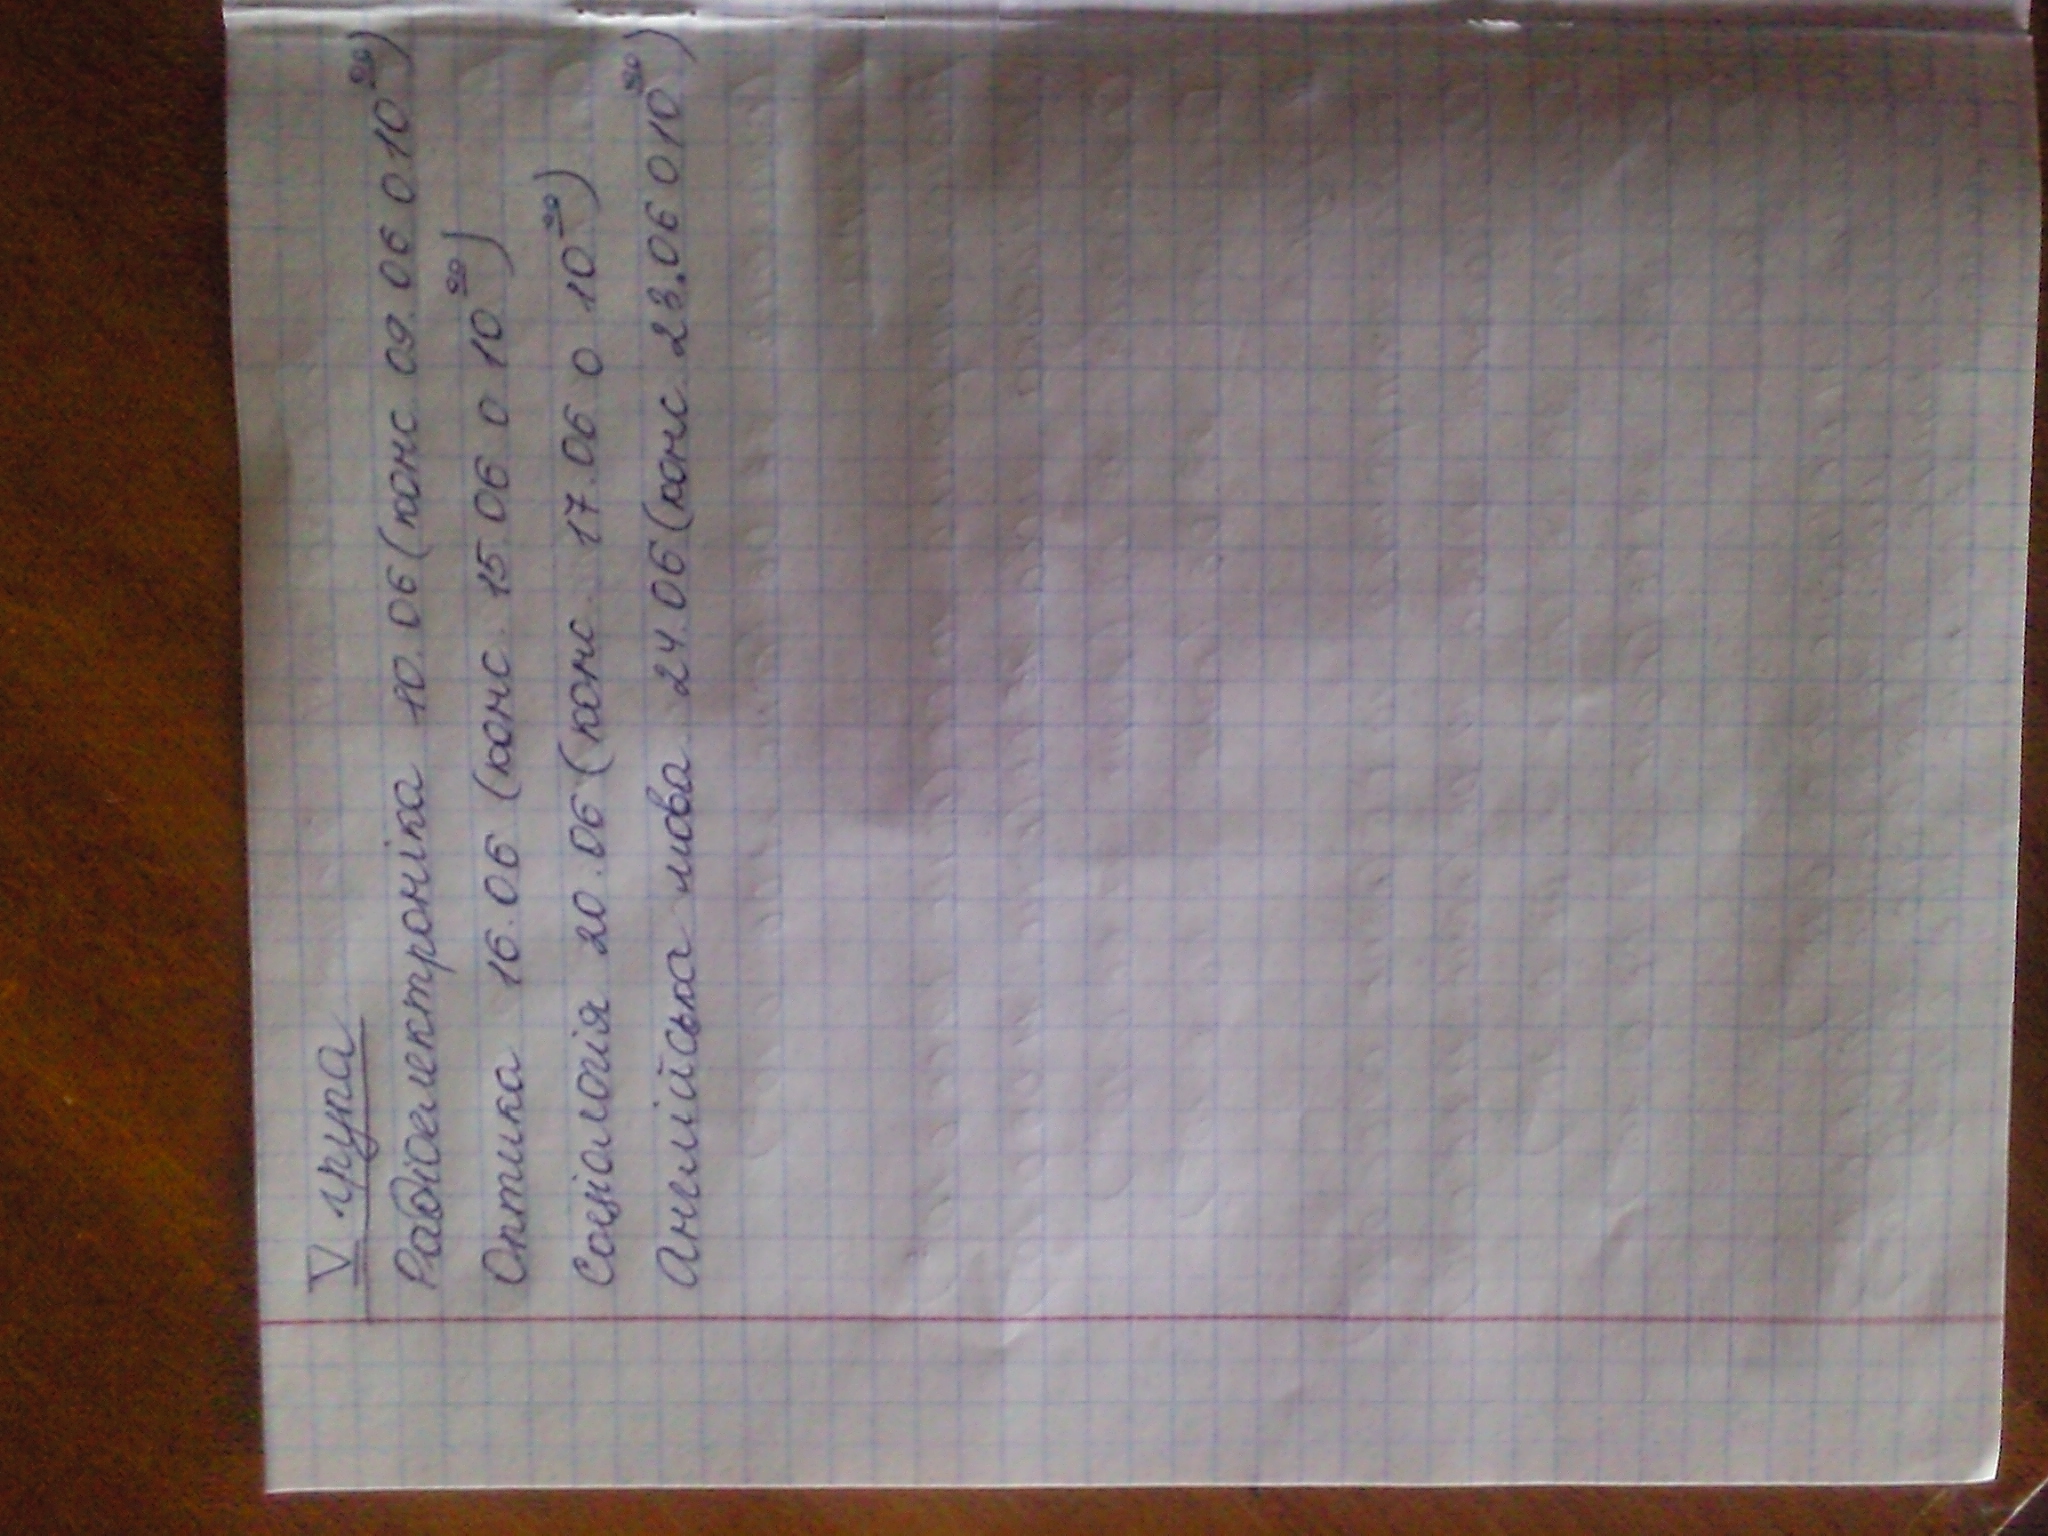 V група
Радіоелектроніка 10.06 (конс. 09.06 о 10⁰⁰)
Оптика 16.06 (конс. 15.06 о 10⁰⁰)
Соціологія 20.06 (конс. 17.06 о 10⁰⁰)
Англійська мова 24.06 (конс. 23.06 о 10⁰⁰)